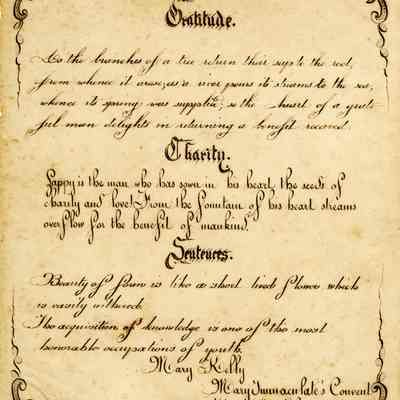 Gratitude.
As the branches of a tree return their sap to the root,
from whence it arose; as a river pours its streams to the sea,
whence its spring was supplied; so the heart of a grate-
ful man delights in returning a benefit received.
Charity.
Happy is the man who has sown in his heart the seeds of
charity and love! From the fountain of his heart streams
overflow for the benefit of mankind.
Sentences.
Beauty of form is like a short lived flower which
is easily withered.
The acquisition of knowledge is one of the most
honorable occupations of youth.
Mary Kelly
Mary Immaculate's Convent